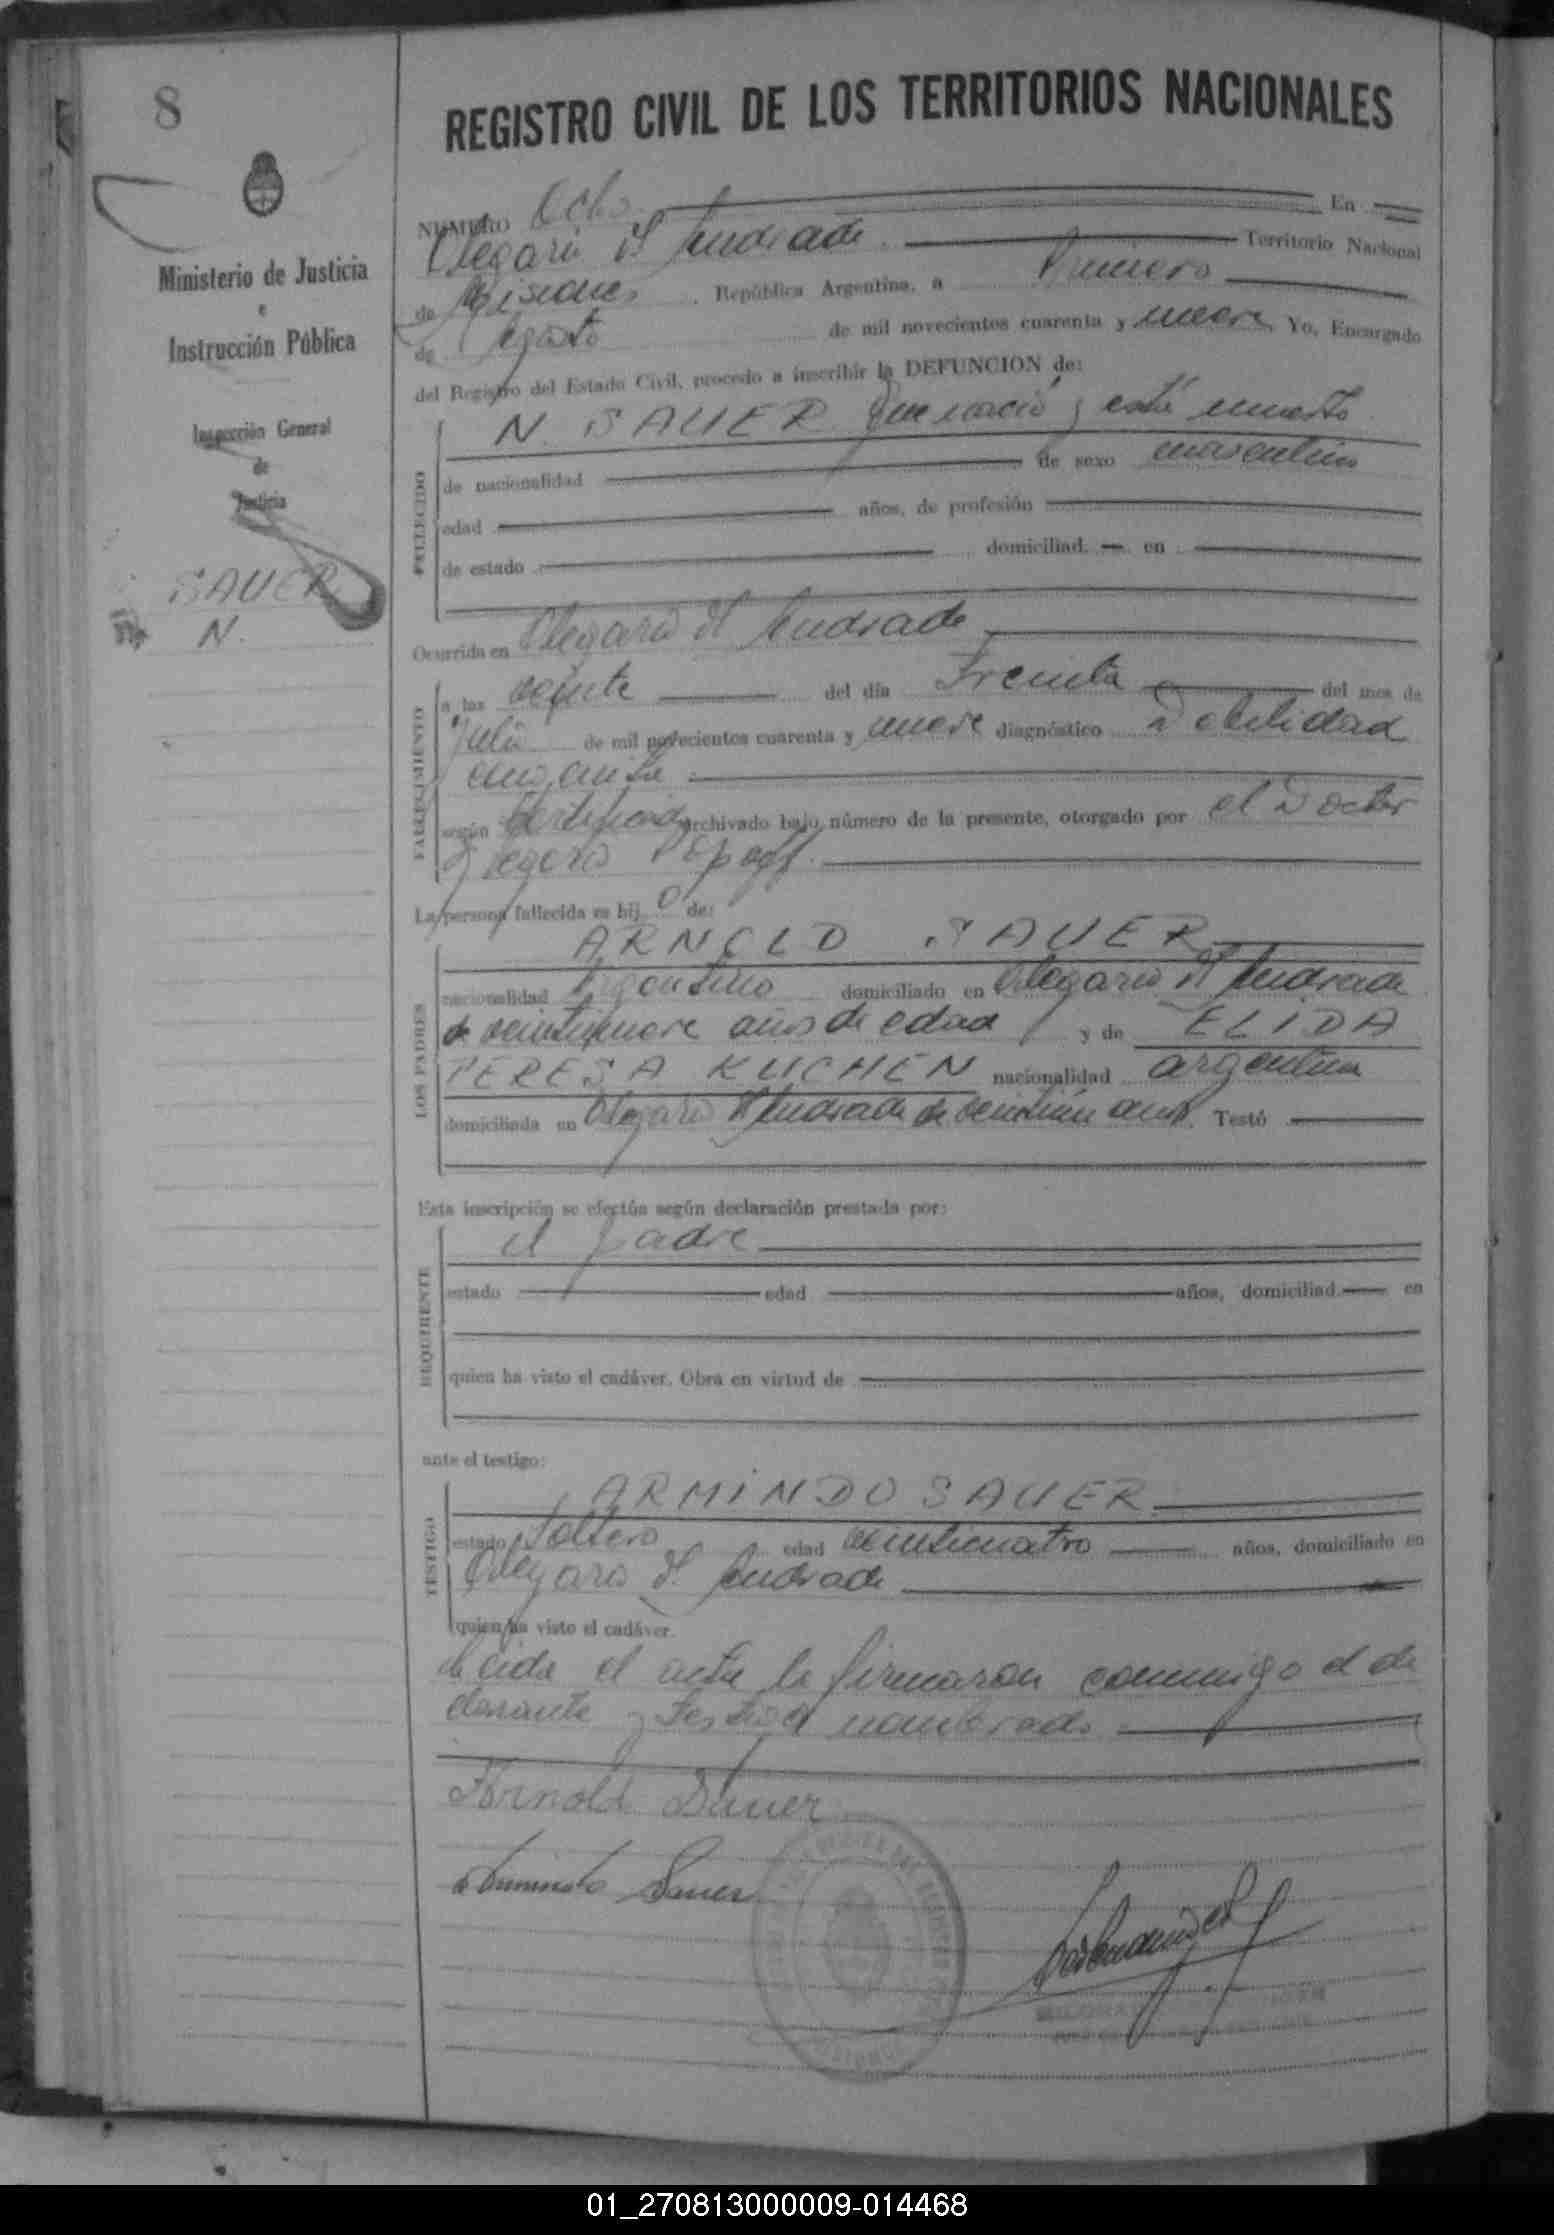 8
REGISTRO CIVIL DE LOS TERRITORIOS NACIONALES
Ministerio de Justicia
e
Instrucción Pública
Inspección General
de
Justicia
SAUER
N.
NUMERO Ocho En
Olegario V. Andrade Territorio Nacional
de Misiones República Argentina, a Primero
de Agosto de mil novecientos cuarenta y nueve Yo, Encargado
del Registro del Estado Civil, procedo a inscribir la DEFUNCION de:
FALLECIDO
N. SAUER que nació y está muerto
de nacionalidad de sexo masculino
edad años, de profesión
de estado domiciliad en
Ocurrida en Olegario V. Andrade
FALLECIMIENTO
a las veinte del día Treinta del mes de
Julio de mil novecientos cuarenta y nueve diagnóstico Debilidad
congenita
según Certificado archivado bajo número de la presente, otorgado por el Doctor
La persona fallecida es hij o de:
LOS PADRES
ARNOLD SAUER
nacionalidad Argentino domiciliado en Olegario V. Andrade
de veintinueve años de edad y de ELIDA
TERESA KUCHEN nacionalidad argentina
domiciliada en Olegario V. Andrade de veintiún años. Testó
Esta inscripción se efectúa según declaración prestada por:
REQUIRENTE
el padre
estado edad años, domiciliad en
quien ha visto el cadáver. Obra en virtud de
ante el testigo:
TESTIGO
ARMINDO SAUER
estado Soltero edad veinticuatro años, domiciliado en
Olegario V. Andrade
quien ha visto el cadáver.
Leida el acta la firmaron conmigo el de
clarante y testigo nombrado.
Arnold Sauer
Armindo Sauer
01_270813000009-014468